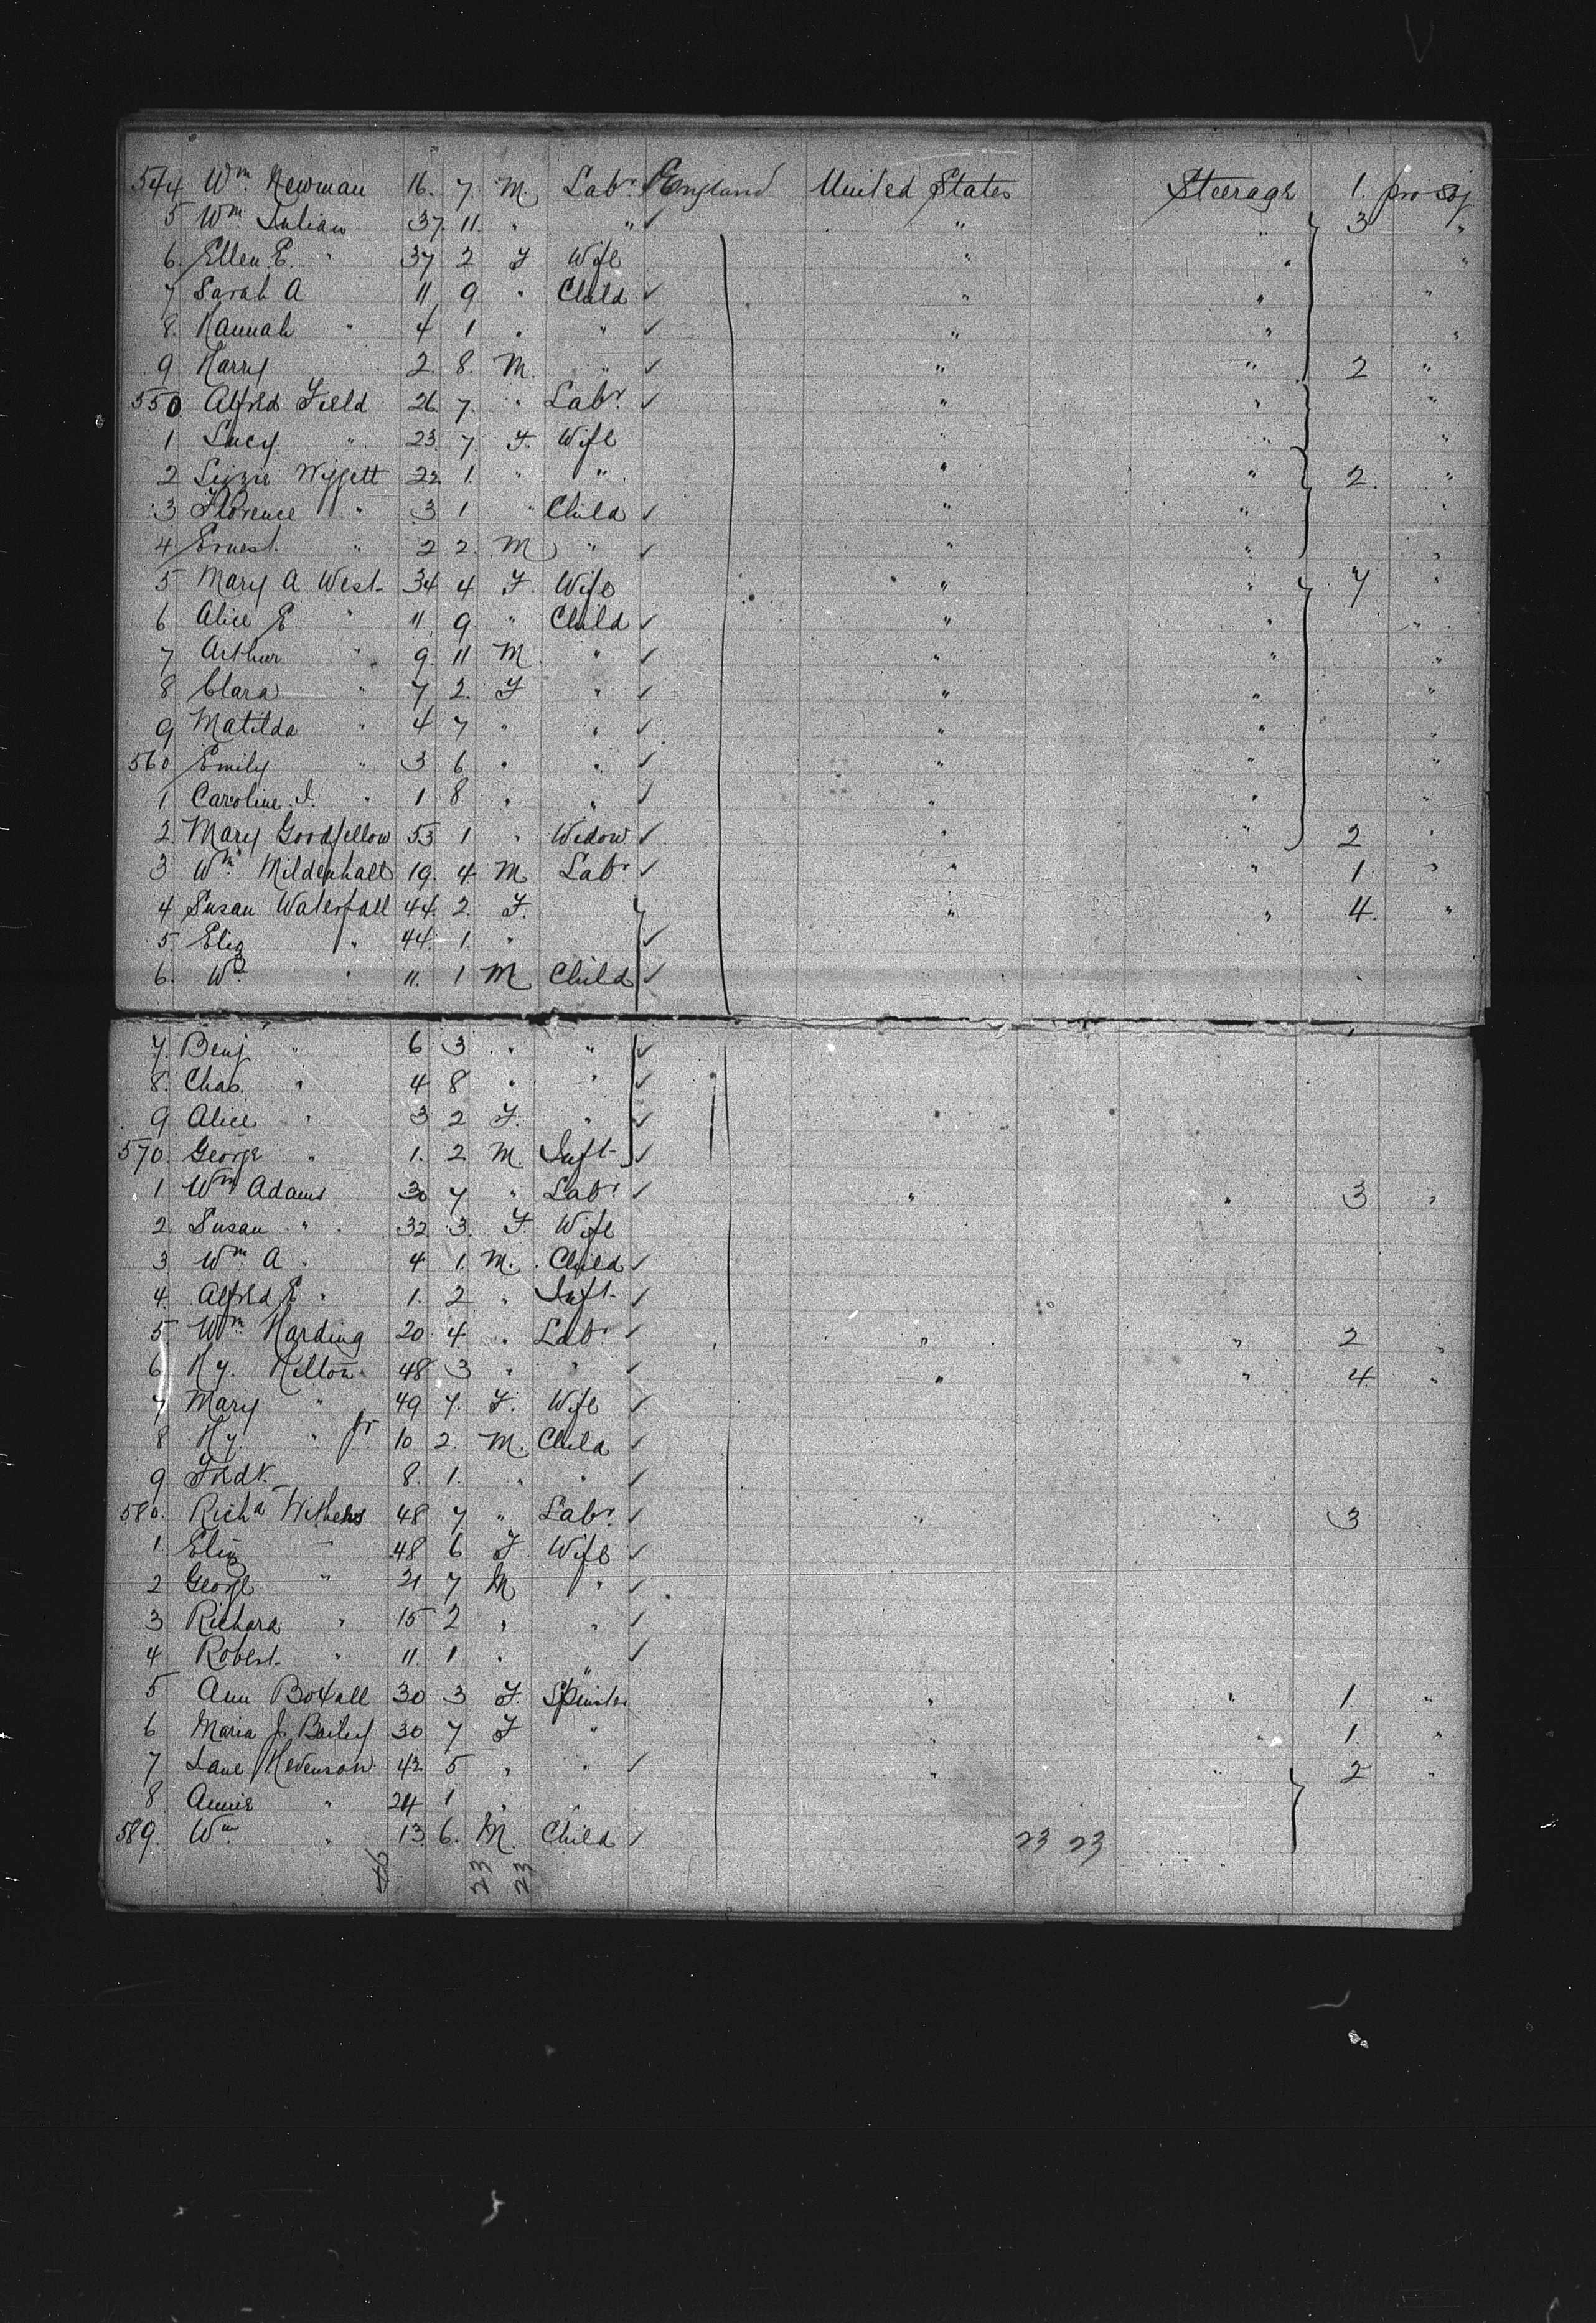 544 Wm. Newman 16. 7. M. Labr. England United States Steerage 1. pro Soj
5 Wm. Julian 37. 11. " " " " 3 "
6. Ellen E. " 37 2 F Wife " " "
7 Sarah A 11 9 " Child " " "
8. Hannah " 4 1 " " " " "
9 Harry 2. 8. M. " " " 2 "
550. Alfred Field 26 7. " Labr. " " "
1 Lucy " 23. 7 F. Wife " " "
2 Lizzie Wiggett 22. 1. " " " " 2. "
3 Florence " 3 1 " Child " " "
4 Ernest. " 2 2. M " " " "
5 Mary A West 34 4 F. Wife " " 7 "
6 Alice E " 11 9 " Child " " "
7 Arthur " 9. 11 M " " " "
8 Clara " 7 2. F " " " "
9 Matilda " 4 7 " " " " "
560 Emily " 3 6 " " " " "
1 Caroline J. " 1 8 " " " " "
2. Mary Goodfellow 53 1 " Widow " " 2 "
3 Wm. Mildenhall 19. 4. M Labr. " " 1. "
4 Susan Waterfall 44. 2. F. " " 4. "
5. Eliz " 44. 1. "
6. Wm " 11. 1 M Child
7. Benj " 6 3 " "
8. Chas. " 4 8 " "
9 Alice " 3 2 F. "
570. George " 1. 2 M. Inft
1 Wm Adams 30 7 " Labr " " 3 "
2 Susan " 32. 3. F. Wife
3 Wm. A " 4 1. M. Child
4. Alfred E " 1. 2 " Inft
5 Wm Harding 20 4. " Labr " " 2 "
6 Hy. Hilton 48 3 " " " " 4. "
7 Mary " 49 7. F. Wife
8 Hy. " Jr. 10 2. M. Child
9 Fredk. 8. 1. " "
580. Richd Withers 48 7 " Labr. " " 3
1. Eliz " 48 6 F. Wife
2 George " 21 7 M "
3 Richard " 15 2 " "
4 Robert " 11. 1 " "
5 Ann Boxall 30 3 F. Spinster " " 1. "
6 Maria J. Bailey 30 7 F " " " 1. "
7 Jane Hevenson 42 5 " " " " 2 "
8 Annie " 24 1 "
589. Wm " 13. 6. M. Child 23 23
46 23 23